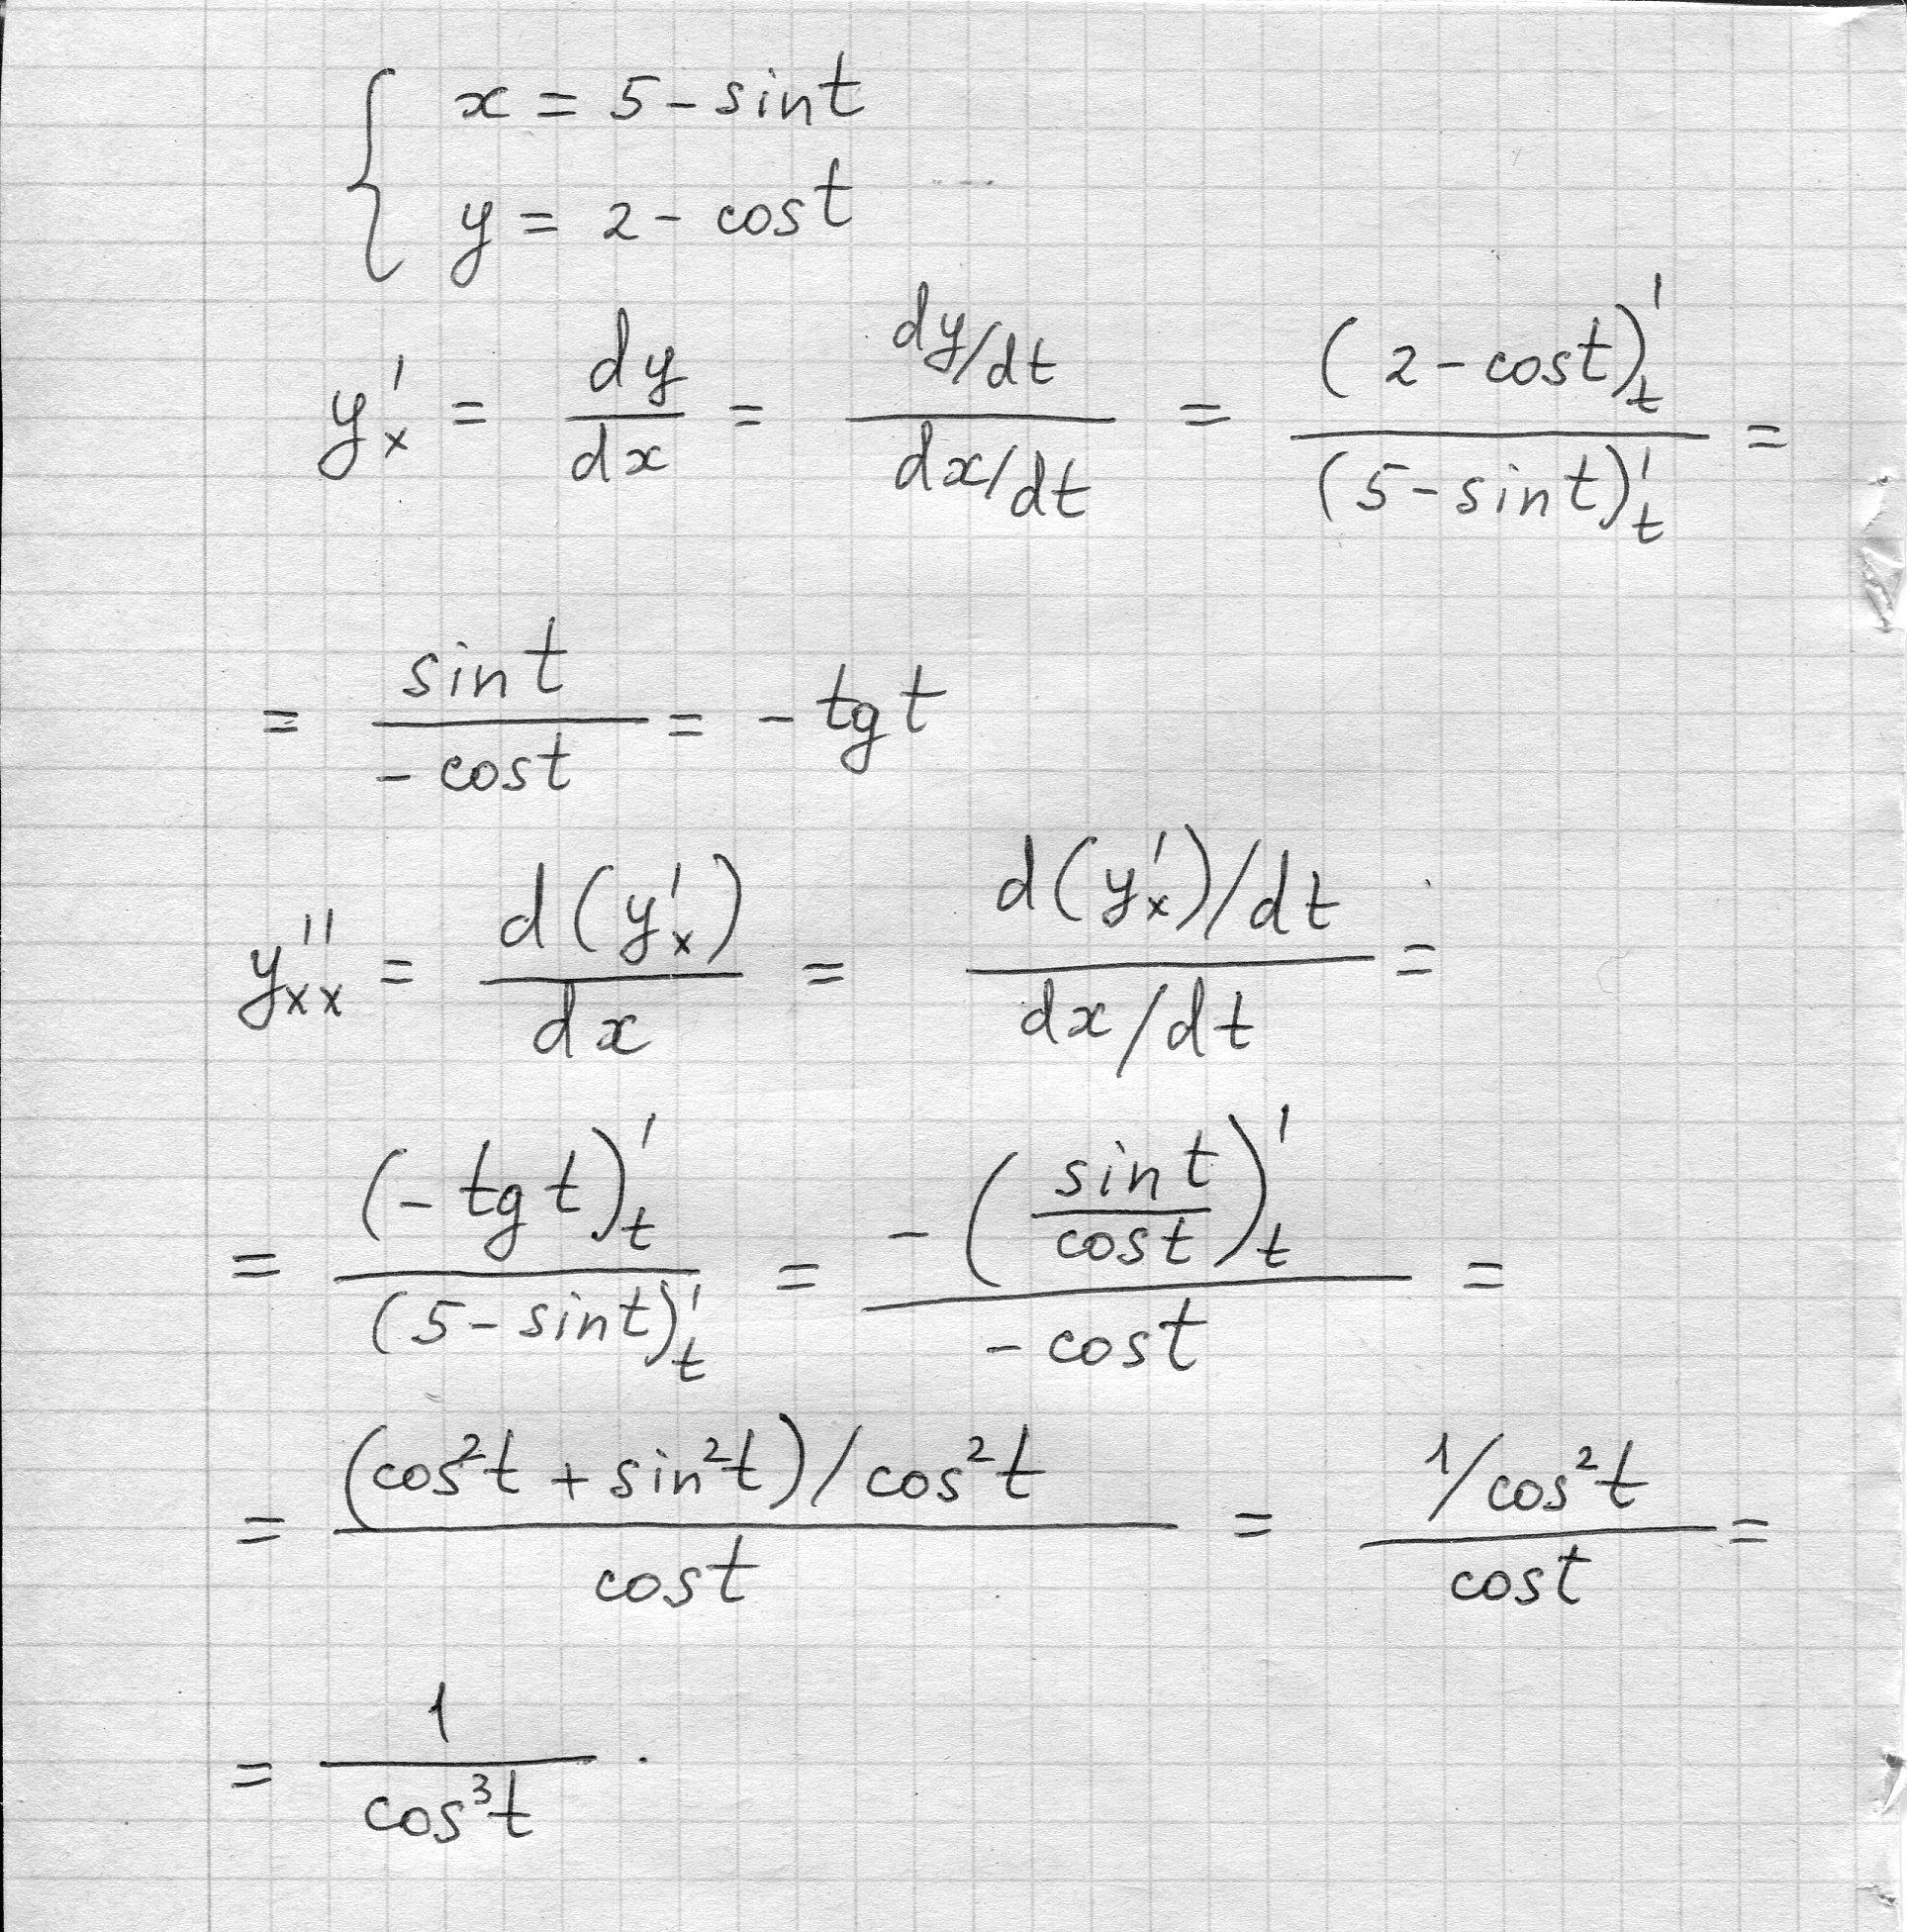 { x = 5 - sin t
y = 2 - cos t
y'_x = dy/dx = (dy/dt)/(dx/dt) = (2 - cos t)'_t/(5 - sin t)'_t =
= sin t/(- cos t) = - tg t
y''_xx = d(y'_x)/dx = (d(y'_x)/dt)/(dx/dt) =
= (- tg t)'_t/(5 - sin t)'_t = -(sin t/cos t)'_t/(- cos t) =
= ((cos²t + sin²t)/cos²t)/cos t = (1/cos²t)/cos t =
= 1/cos³t .